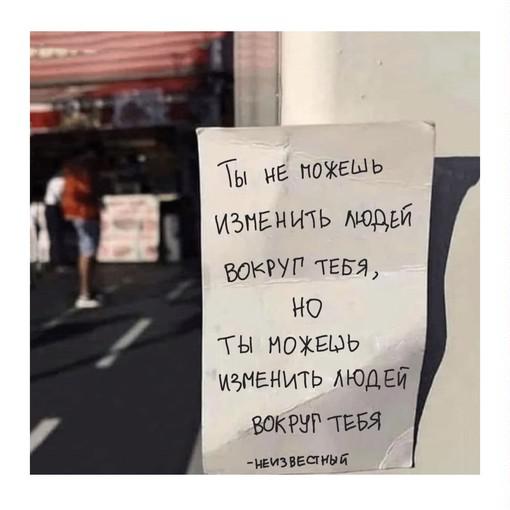 Ты не можешь
изменить людей
вокруг тебя,
но
ты можешь
изменить людей
вокруг тебя
-неизвестный